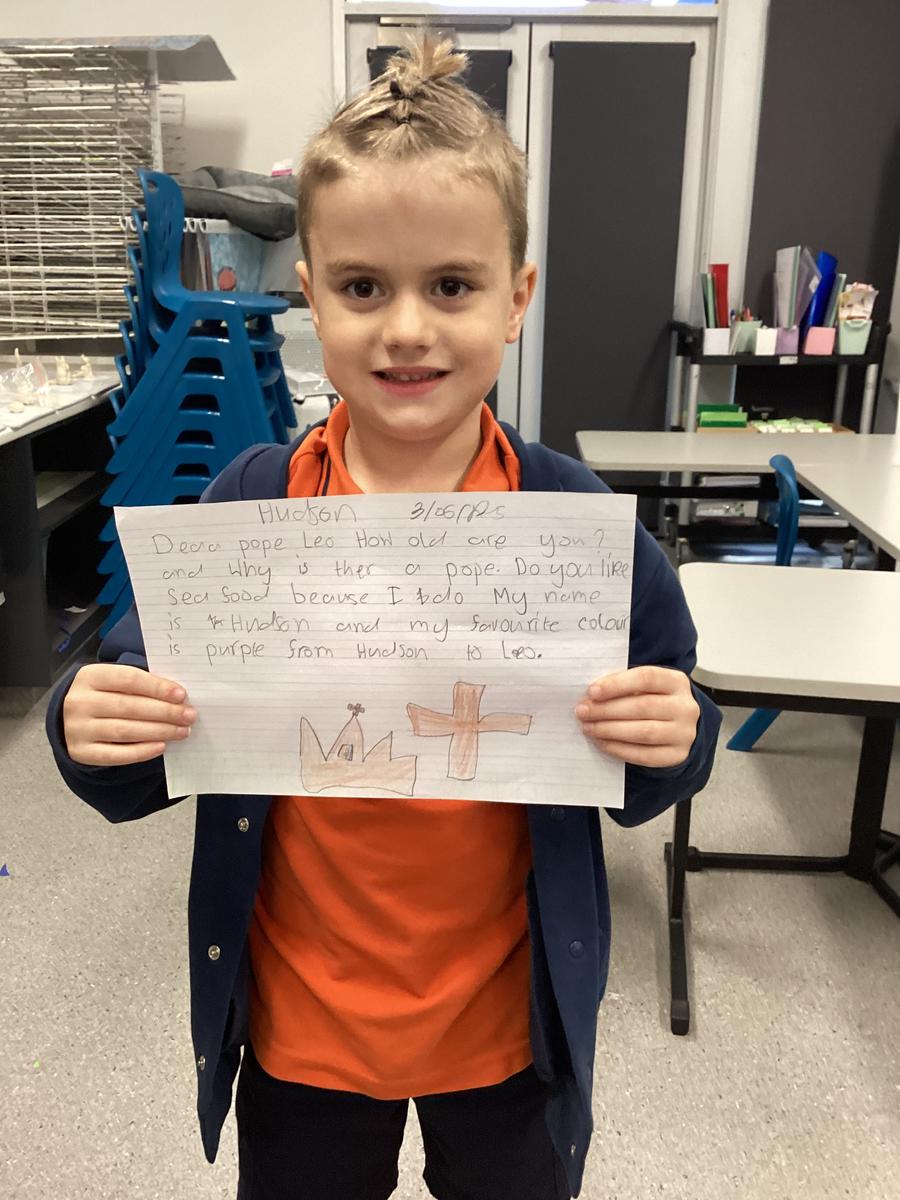 Hudson 3/06/2025
Dear pope Leo How old are you?
and Why is ther a pope. Do you like
Sea food beause I do My name
is Hudson and my favourite colour
is purple from Hudson to Leo.